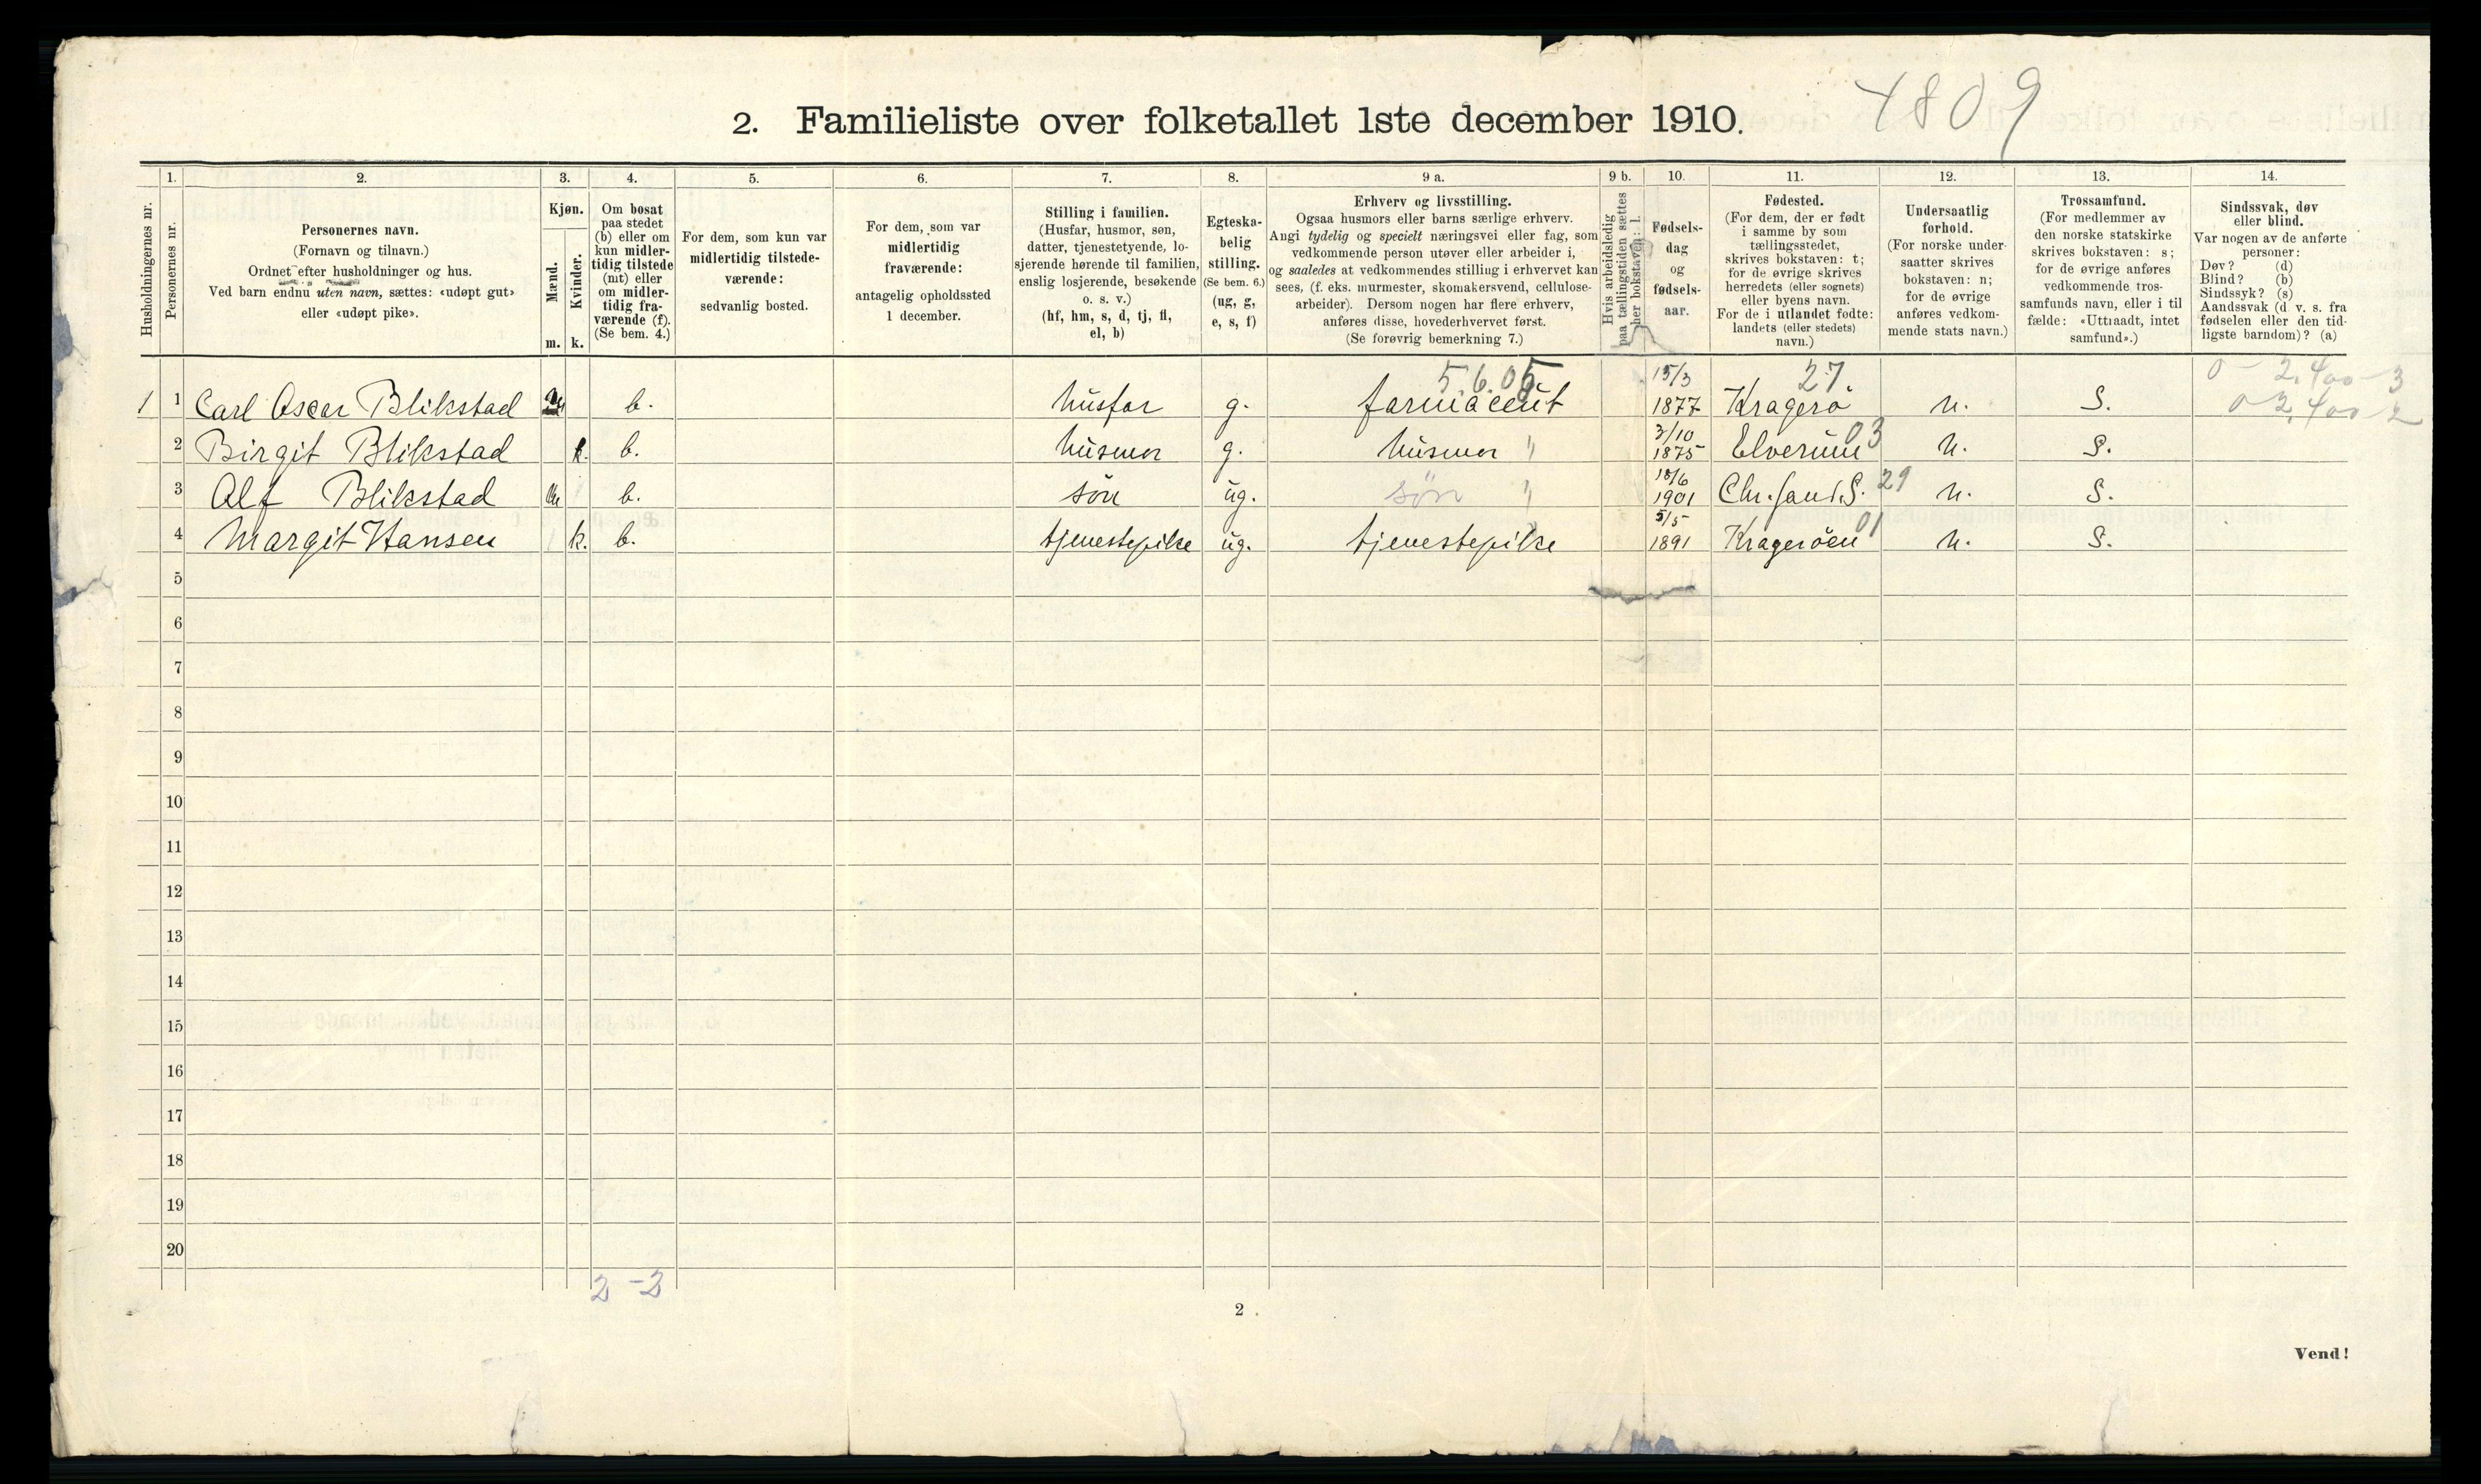 4809
2. Familieliste over folketallet 1ste december 1910.
Husholdningernes nr.
1.
Personernes nr.
2.
Personernes navn.
(Fornavn og tilnavn.)
Ordnet efter husholdninger og hus.
Ved barn endnu uten navn, sættes: «udøpt gut»
eller «udøpt pike».
3.
Kjøn.
Mænd.
Kvinder.
m. k.
4.
Om bosat
paa stedet
(b) eller om
kun midler-
tidig tilstede
(mt) eller
om midler-
tidig fra-
værende (f).
(Se bem. 4.)
5.
For dem, som kun var
midlertidig tilstede-
værende:
sedvanlig bosted.
6.
For dem, som var
midlertidig
fraværende:
antagelig opholdssted
1 december.
7.
Stilling i familien.
(Husfar, husmor, søn,
datter, tjenestetyende, lo-
sjerende hørende til familien,
enslig losjerende, besøkende
o. s. v.)
(hf, hm, s, d, tj, fl,
el, b)
8.
Egteska-
belig
stilling.
(Se bem. 6.)
(ug, g,
e, s, f)
9 a.
Erhverv og livsstilling.
Ogsaa husmors eller barns særlige erhverv.
Angi tydelig og specielt næringsvei eller fag, som
vedkommende person utøver eller arbeider i,
og saaledes at vedkommendes stilling i erhvervet kan
sees, (f. eks. murmester, skomakersvend, cellulose-
arbeider). Dersom nogen har flere erhverv,
anføres disse, hovederhvervet først.
(Se forøvrig bemerkning 7.)
9 b.
Hvis arbeidsledig
paa tællingstiden sættes
her bokstaven: l.
10.
Fødsels-
dag
og
fødsels-
aar.
11.
Fødested.
(For dem, der er født
i samme by som
tællingsstedet,
skrives bokstaven: t;
for de øvrige skrives
herredets (eller sognets)
eller byens navn.
For de i utlandet fødte:
landets (eller stedets)
navn.)
12.
Undersaatlig
forhold.
(For norske under-
saatter skrives
bokstaven: n;
for de øvrige
anføres vedkom-
mende stats navn.)
13.
Trossamfund.
(For medlemmer av
den norske statskirke
skrives bokstaven: s;
for de øvrige anføres
vedkommende tros-
samfunds navn, eller i til
fælde: «Uttraadt, intet
samfund».)
14.
Sindssvak, døv
eller blind.
Var nogen av de anførte
personer:
Døv? (d)
Blind? (b)
Sindssyk? (s)
Aandssvak (d. v. s. fra
fødselen eller den tid-
ligste barndom)? (a)
5.6.05 15/3 27. 0 - 2.400 - 3
1 1 Carl Oscar Blikstad m b. husfar g. farmaceut 1877 Kragerø n. S. 0 2.400 - 2
3/10 03
2 Birgit Blikstad k. b. husmor g. husmor " 1875 Elverum n. S.
18/6
3 Alf Blikstad m b. søn ug. søn " 1901 Chr.sand.S. 29 n. S.
5/5 01
4 Margit Hansen k. b. tjenestepike ug. tjenestepike 1891 Kragerøen n. S.
5
6
7
8
9
10
11
12
13
14
15
16
17
18
19
20
2 - 2
2
Vend!